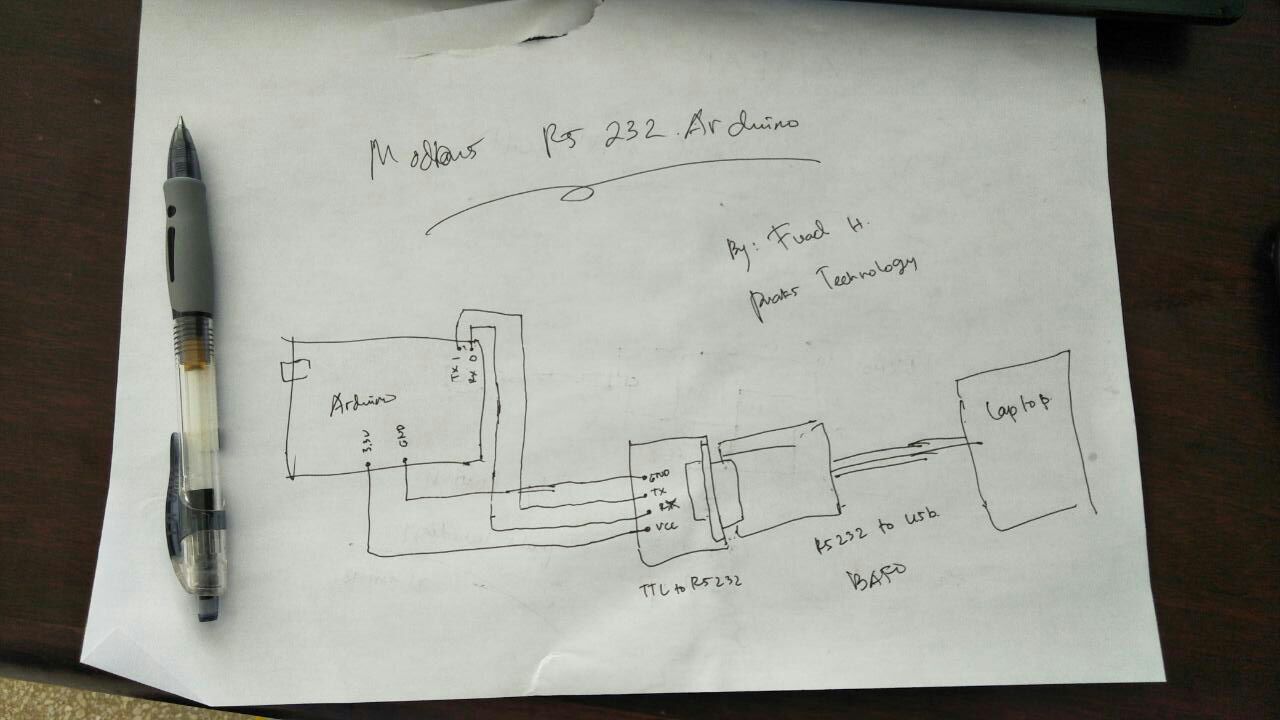 Modbus RS 232 Arduino
By: Fuad H.
Technology
TX 1
RX 0
Arduino
3.3V
GND
Laptop
GND
TX
RX
VCC
TTL to RS232
RS232 to USB
BAFO